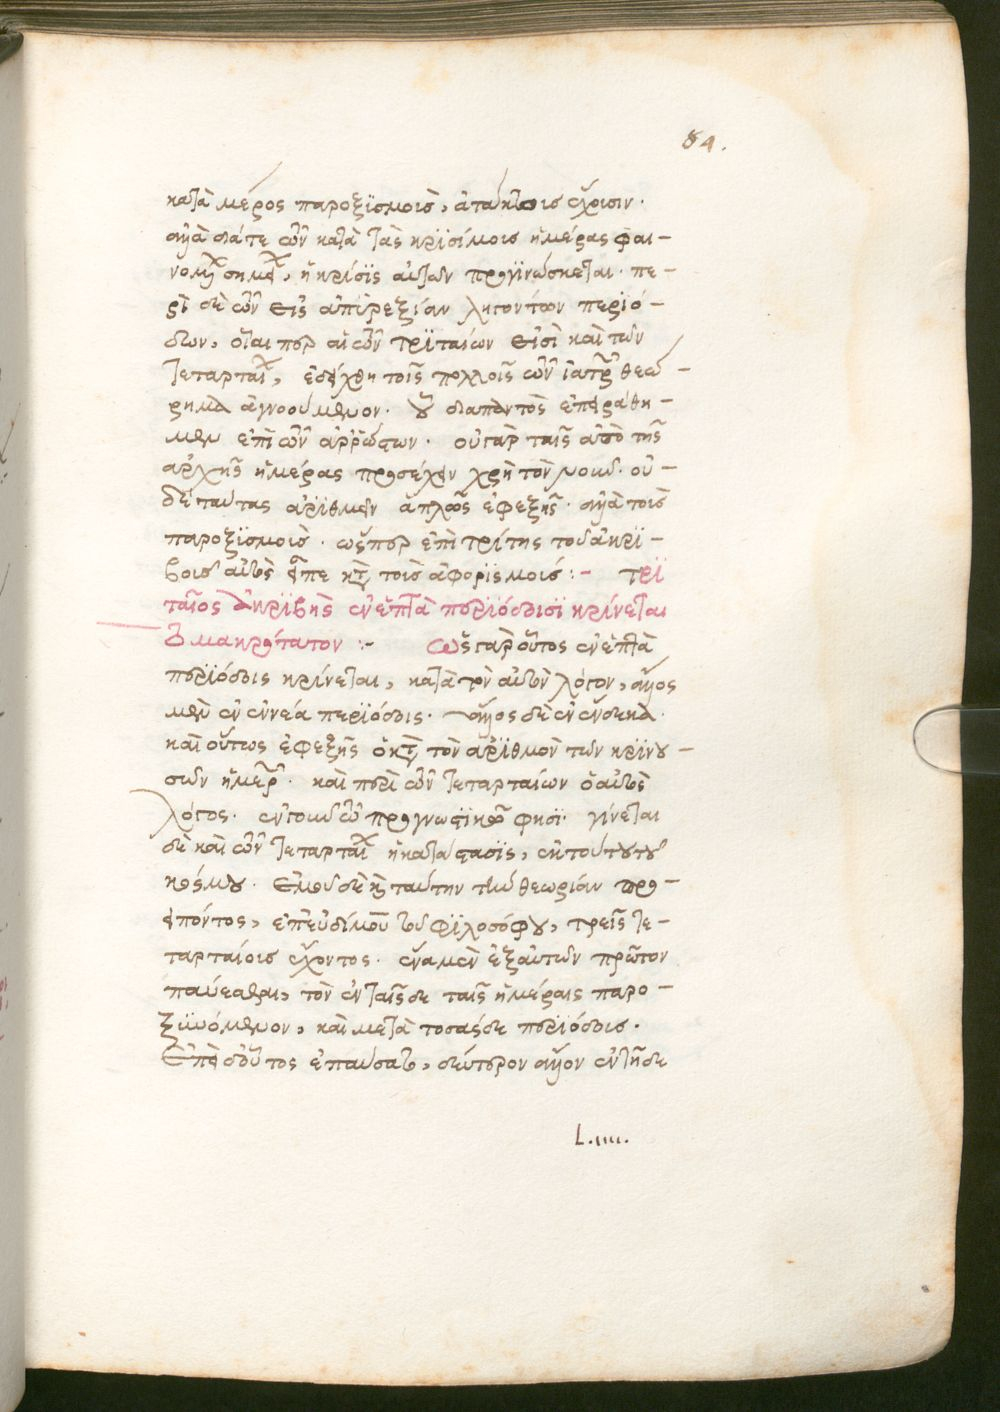 84.
κατὰ μέρος παροξϊσμοῖς, ἀτάκτοις ἔχουσιν·
ἀλλὰ διά τε τῶν κατὰ τὰς κρϊσίμοις ἡμέρας φαι-
νομένων σημείων, ἡ κρίσϊς αὐτῶν προγϊνώσκεται· πε-
ρὶ δὲ τῶν εἰς ἀπϋρεξίαν ληγουσῶν περϊό-
δων, οἷαι περ αἱ τῶν τρϊταίων εἰσὶ καὶ τῶν
τεταρταίων, ἐδείχθη τοῖς πολλοῖς τῶν ἰατρῶν θεώ-
ρημα ἀγνοούμενον· οὗ διαπαντὸς ἐπειράθη-
μεν ἐπὶ τῶν ἀρρώστων· οὐ γὰρ ταῖς ἀπὸ τῆς
ἀρχῆς ἡμέρας προσέχειν χρὴ τὸν νοῦν· οὐ-
δὲ ταύτας ἀρϊθμεῖν ἁπλῶς ἐφεξῆς· ἀλλὰ τοῖς
παροξϊσμοῖς· ὥσπερ ἐπὶ τρίτης τοῦ ἀκρϊ-
βοῦς αὐτὸς εἶπε κατὰ τοῖς ἀφορϊσμοῖς :- τρϊ
ταῖος ἀκρϊβὴς ἐν ἑπτὰ περϊόδοισϊ κρίνεται
τὸ μακρότατον :- ὡς γὰρ οὗτος ἐν ἑπτὰ
περϊόδοις κρίνεται, κατὰ τὸν αὐτὸν λόγον, ἄλλος
μὲν ἐν ἐννεία περϊόδοις· ἄλλος δὲ ἐν ἕνδεκα·
καὶ οὕτως ἐφεξῆς ὁ κατὰ τὸν ἀρϊθμὸν τῶν κρϊνου-
σῶν ἡμερῶν· καὶ περὶ τῶν τεταρταίων ὁ αὐτὸς
λόγος· ἐν γοῦν τῶ προγνωστϊκῶ φησϊ· γίνεται
δὲ καὶ τῶν τεταρταίων ἡ κατάστασϊς, ἐκ τούτου τοῦ
κόσμου· ἐμοῦ δὲ κατὰ ταύτην τὴν θεωρίαν προ-
ειπόντος, ἐπ' εὐδίμου τοῦ φϊλοσόφου, τρεῖς τε-
ταρταίοις ἔχοντος· ἕνα μὲν ἐξ αὐτῶν πρῶτον
παύσασθαι, τὸν ἐν ταῖσδε ταῖς ἡμέραις παρο-
ξϋνόμενον, καὶ μετὰ τοσάσδε περϊόδοις·
ἐπεὶ δ' οὗτος ἐπαύσατο, δεύτερον ἄλλον ἐν τῆσδε
L.iiii.